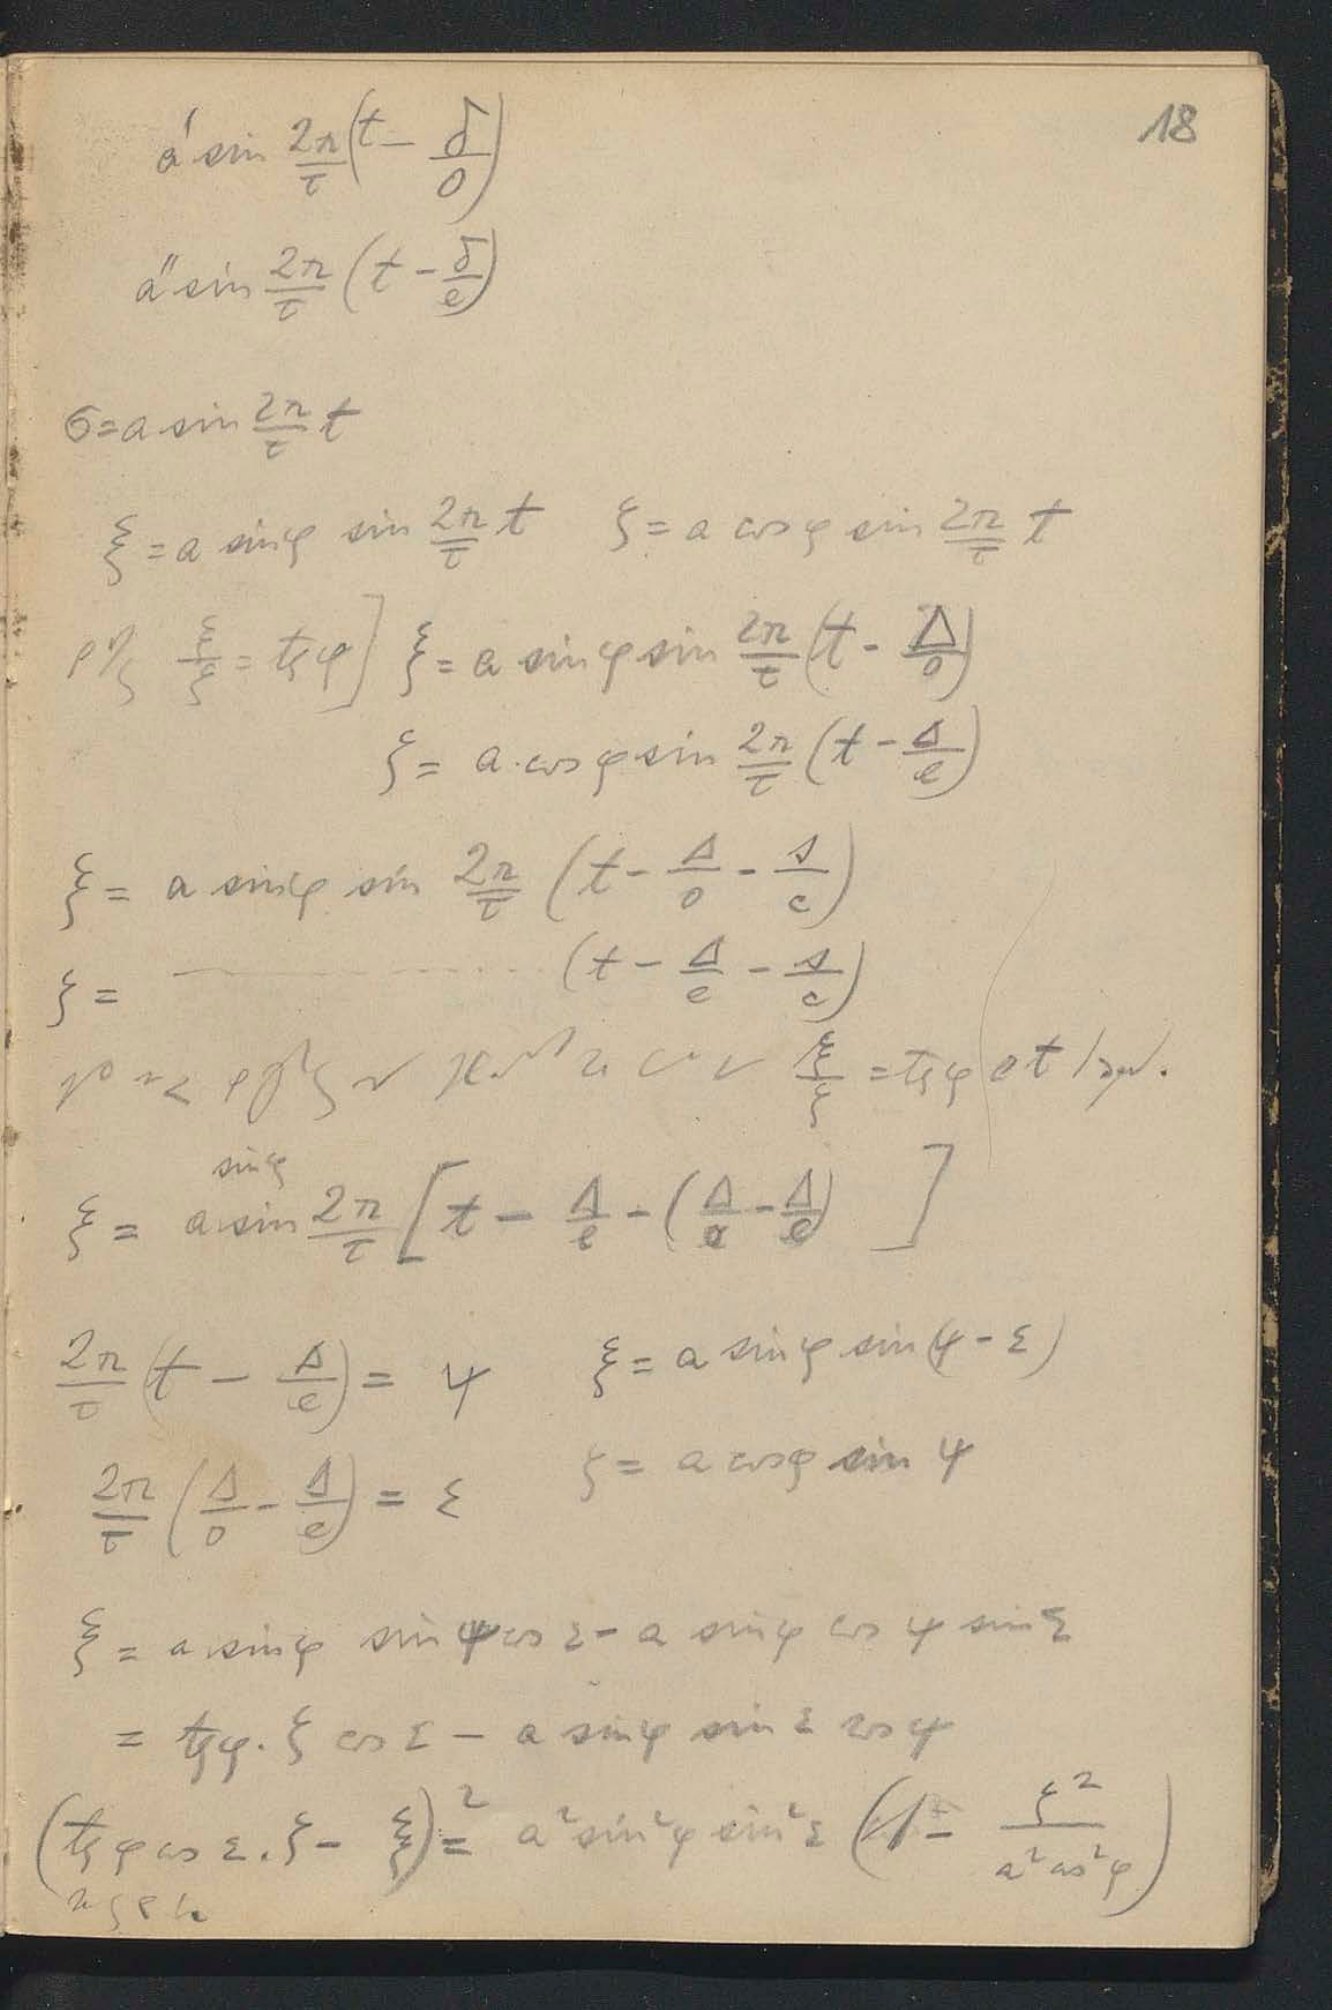 18
a' sin 2π/τ (t − δ/o)
a'' sin 2π/τ (t − δ/e)
σ = a sin 2π/τ t
ξ = a sinφ sin 2π/τ t ζ = a cosφ sin 2π/τ t
ξ/ζ = tgφ] ξ = a sinφ sin 2π/τ (t − Δ/o)
ζ = a cosφ sin 2π/τ (t − Δ/e)
ξ = a sinφ sin 2π/τ (t − Δ/o − s/c)
ζ = ---------- (t − Δ/e − s/c)
ξ/ζ = tgφ
sinφ
ξ = a sin 2π/τ [t − Δ/e − (Δ/o − Δ/e) ]
2π/τ (t − Δ/e) = ψ ξ = a sinφ sin(ψ − ε)
2π/τ (Δ/o − Δ/e) = ε ζ = a cosφ sin ψ
ξ = a sinφ sin ψ cos ε − a sinφ cos ψ sin ε
= tgφ. ζ cos ε − a sinφ sin ε cos ψ
(tgφ cos ε. ζ − ξ)² = a² sin²φ sin²ε (1 − ζ²/a² cos²φ)